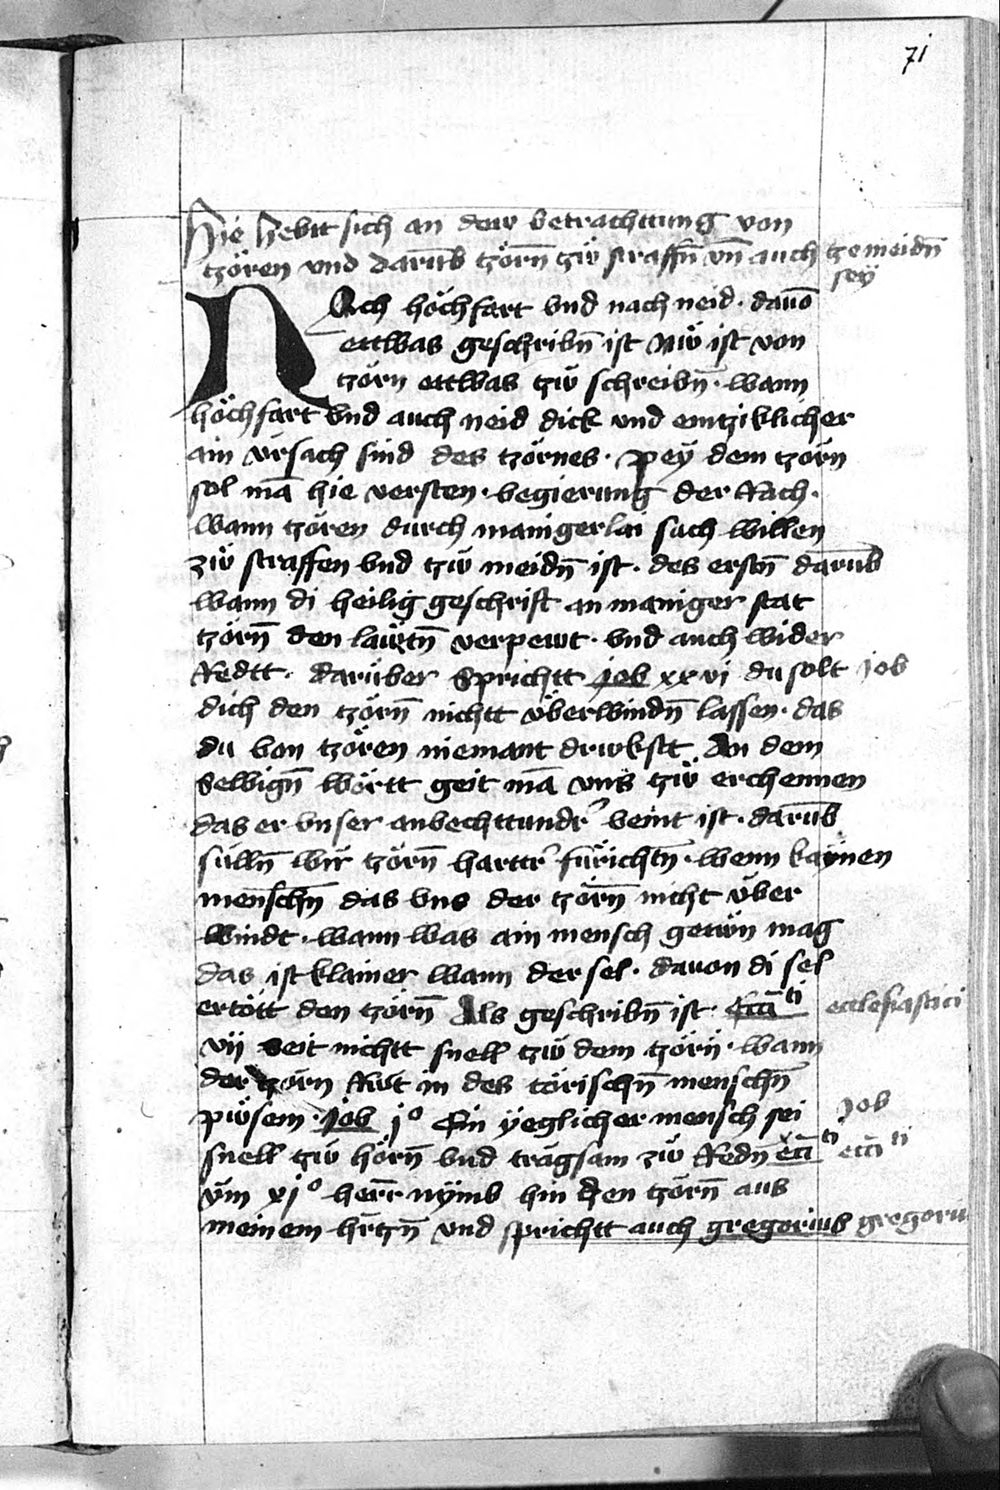 71
Hie hebtt sich an dew betrachttung von
tzören vnd darūb tzörn̄ tzw̋ straffn̄ vn̄ auch tzemeidn̄
sey
NAch höchfart vnd nach neid · dauō
ettwas geschribn̄ ist Nw̋ ist von
tzörn ettwas tzw̋ schreibn̄ · wann
höchfart vnd auch neid dick vnd emtziklicher
ain vrsach sind des tzörnes · Pey dem tzörn
sol mā hie versten · begierung der Rach ·
wann tzören durch manigerlai sach willen
zw̋ straffen vnd tzw̋ meidn̄ ist · des erstn̄ darūb
wann di heilig geschrift an maniger stat
tzörn̄ den lawtn̄ verpewt · vnd auch wider
Redtt · darüber Sprichtt job xxvi du solt job
dich den tzörn̄ nichtt überwindn̄ lassen · das
du von tzören niemant drwkstt An dem
Selbign̄ wörtt geit mā vns tzw̋ erchennen
das er vnser anbechttundr̓ veint ist · darūb
sülln̄ wir tzörn̄ harttr̓ fürichtn̄ · wenn kaynen
menschn̄ das vns der tzörn̄ nicht über
windt · wann was ain mensch getwn mag
das ist klainer wann der sel · dauon di sel
ertött den tzörn̄ Als geschribn̄ ist · Eccī ti ecclesiastici
vij Seit nichtt snell tzw̋ dem tzörn · wann
der tzörn Rwt in des törischn̄ menschn̄
pw̋sem · job j⁰ Ein yeglicher mensch sei job
snell tzw̋ hörn̄ vnd tragsam zw̋ Redn ecī ti eccī ti
vm̄ xj⁰ herr nymb hin den tzörn̄ aus
meinem hr̄tzn̄ vnd sprichtt auch gregorius gregoriu